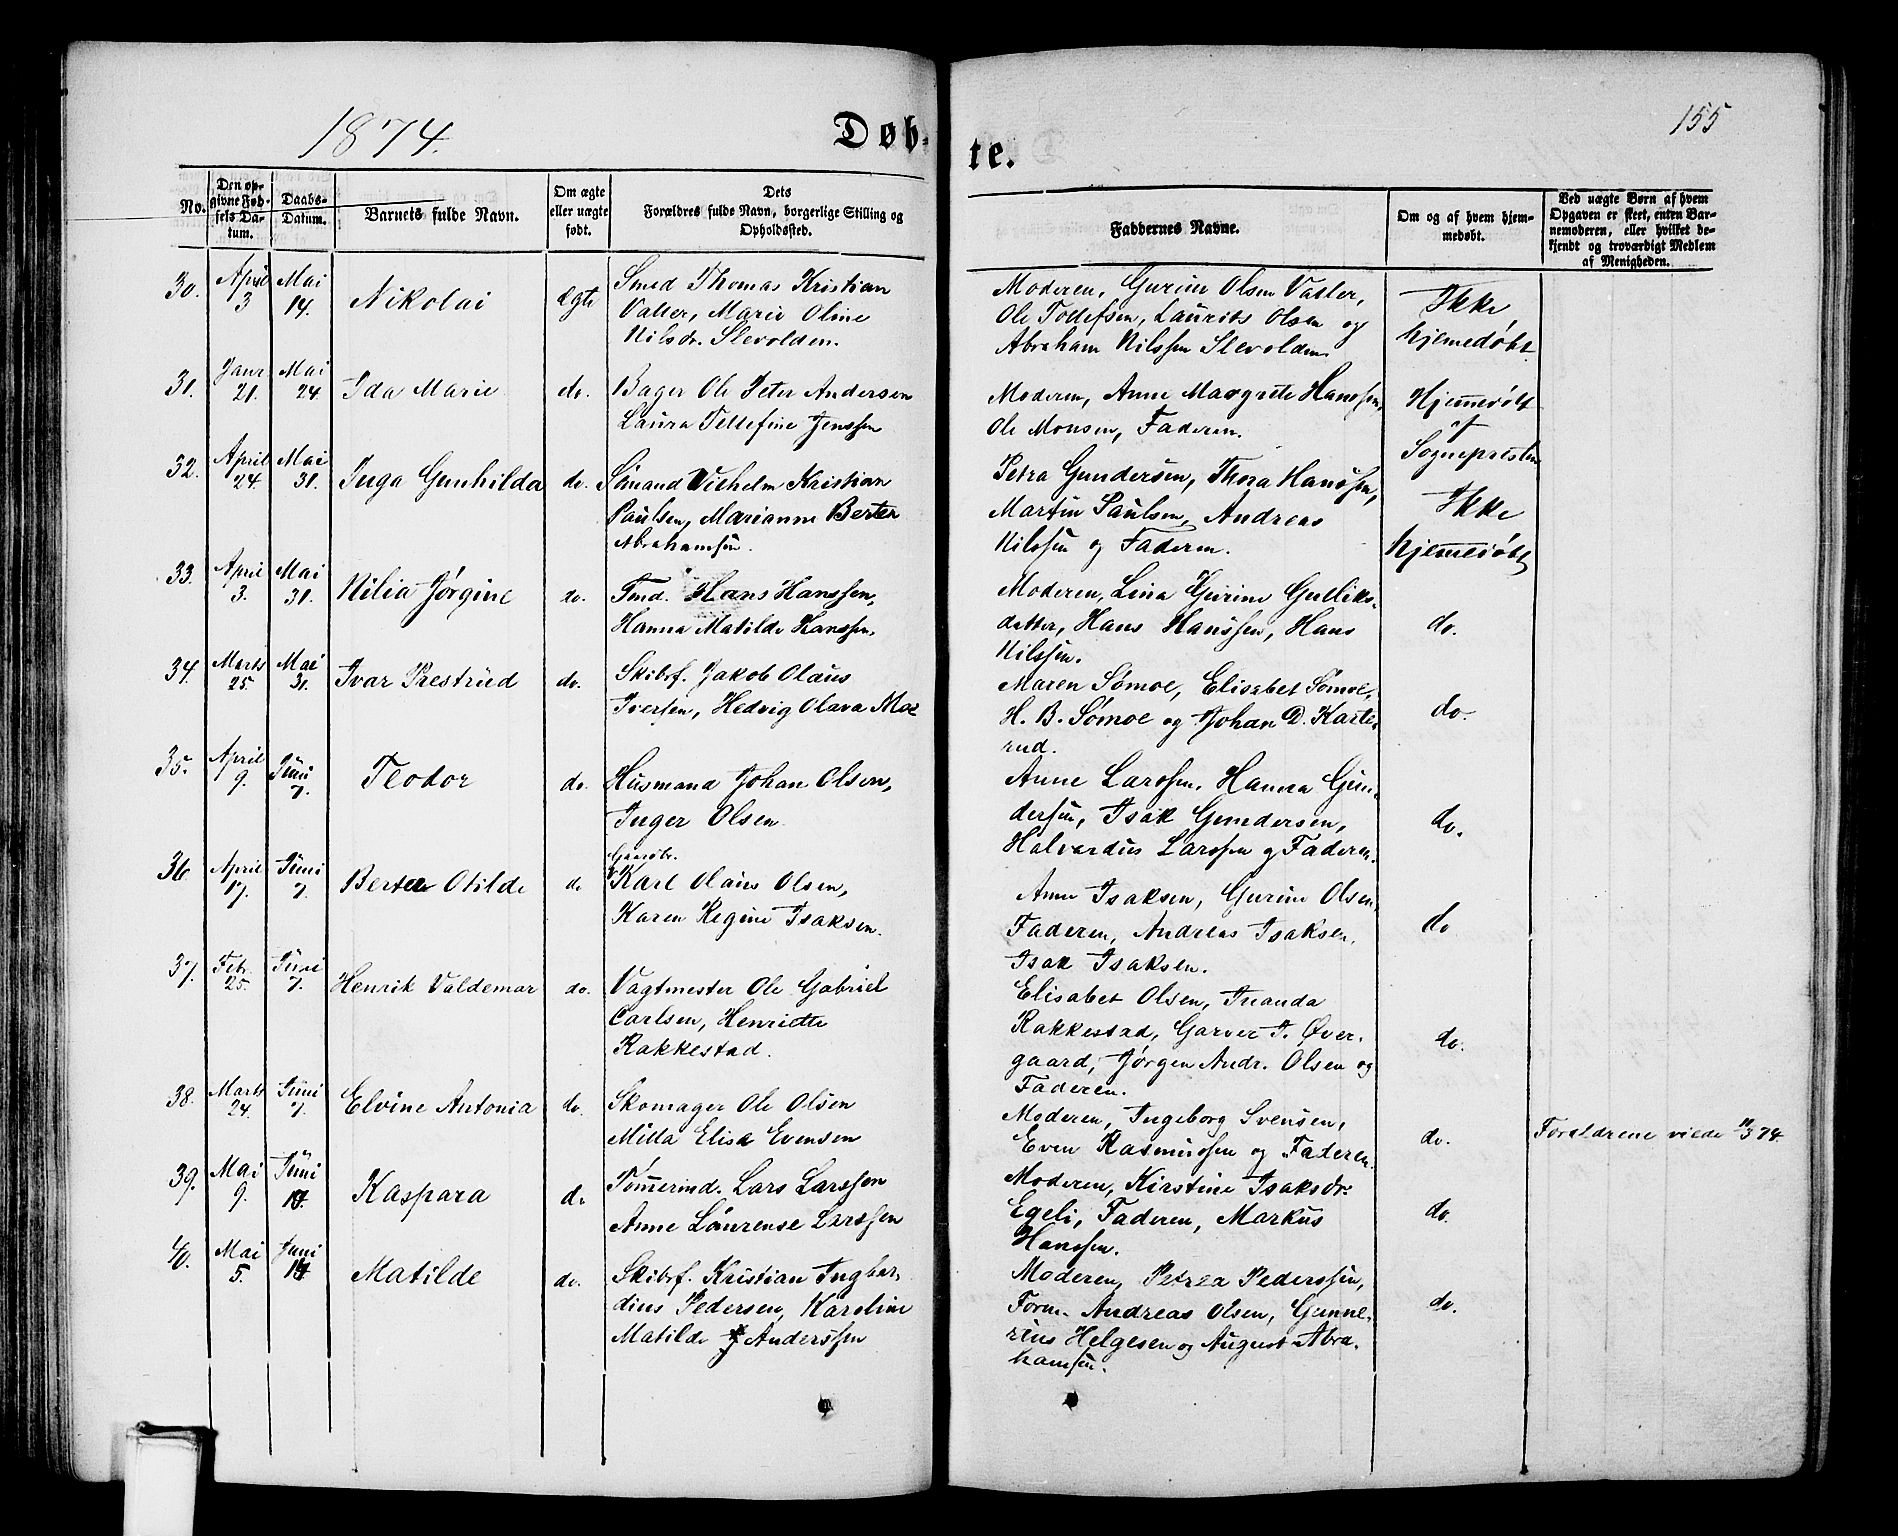 1874.
Døb-
te.
155
No.
Den op-
givne Fød-
sels Da-
tum.
Daabs-
Datum.
Barnets fulde Navn.
Om ægte
eller uægte
født.
Dets
Forældres fulde Navn, borgerlige Stilling og
Opholdssted.
Faddernes Navne.
Om og af hvem hjem-
medøbt.
Ved uægte Børn af hvem
Opgaven er skeet, enten Bar-
nemoderen, eller hvilket be-
kjendt og troværdigt Medlem
af Menigheden.
30. April 3 Mai 14. Nikolai ægte
Smed Thomas Kristian
Valler, Marie Oline
Nilsdr. Slevolden.
Moderen, Gurine Olsen Valler,
Ole Tollefsen, Laurits Olsen og
Abraham Nilssen Slevolden
Ikke
hjemedøbt
31. Janr 21. Mai 24. Ida Marie do.
Bager Ole Peter Andersen
Laura Tellefine Jenssen
Moderen, Anne Margrete Hanssen,
Ole Monsen, Faderen.
Hjemedøbt
af
Sognepresten
32. April 24. Mai 31. Inga Gunhilda do.
Sömand Vilhelm Kristian
Paulsen, Marianne Berter
Abrahamsen.
Petra Gundersen, Thora Hanssen,
Martin Paulsen, Andreas
Nilssen og Faderen.
Ikke
hjemedøbt
33. April 3. Mai 31. Nilia Jørgine do.
Tmd. Hans Hanssen,
Hanna Matilde Hanssen,
Moderen, Lina Gurine Gulliks-
datter, Hans Hanssen, Hans
Nilssen.
do.
34. Marts 25. Mai 31. Ivar Prestrud do.
Skibsf. Jakob Olaus
Iversen, Hedvig Olava Moe
Maren Sømoe, Elisabet Sømoe,
H. B. Sømoe og Johan D. Karte-
rud.
do.
35. April 9. Juni 7. Teodor do.
Husmand Johan Olsen,
Inger Olsen
Anne Larssen, Hanna Gun-
dersen, Isak Gundersen,
Halvardus Larssen og Faderen.
do.
36. April 17. Juni 7. Berte Otilde do
Karl Olaus Olsen,
Karen Regine Isaksen.
Anne Isaksen, Gurine Olsen,
Faderen, Andreas Isaksen,
Isak Isaksen.
do
37. Febr. 25. Juni 7. Henrik Valdemar do.
Vagtmester Ole Gabriel
Carlsen, Henriette
Rakkestad.
Elisabet Olsen, Inanda
Rakkestad, Garver T. Øver-
gaard, Jørgen Andr. Olsen og
Faderen.
do.
38. Marts 24. Juni 7. Elvine Antonia do.
Skomager Ole Olsen
Milla Elisa Evensen
Moderen, Ingeborg Svensen,
Even Rasmussen og Faderen.
do.
Forældrene viede 74.
39. Mai 9. Juni 14. Kaspara do
Tömerind. Lars Larssen
Anne Laurense Larssen
Moderen, Kirstine Isaksdr.
Egeli, Faderen, Markus
Hanssen.
do.
40. Mai 5. Juni 14 Matilde do.
Skibsf. Kristian Ingbar-
dius Pedersen, Karoline
Matilde Anderssen
Moderen, Petrea Pederssen,
Form. Andreas Olsen, Gunne-
rius Helgesen og August Abra-
hamsen.
do.